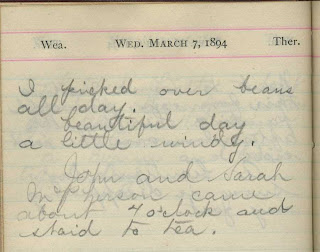 Wea. WED. MARCH 7, 1894 Ther.
I picked over beans
all day.
beautiful day
a little windy.
John and Sarah
McPherson came
about 7 oclock and
staid to tea.